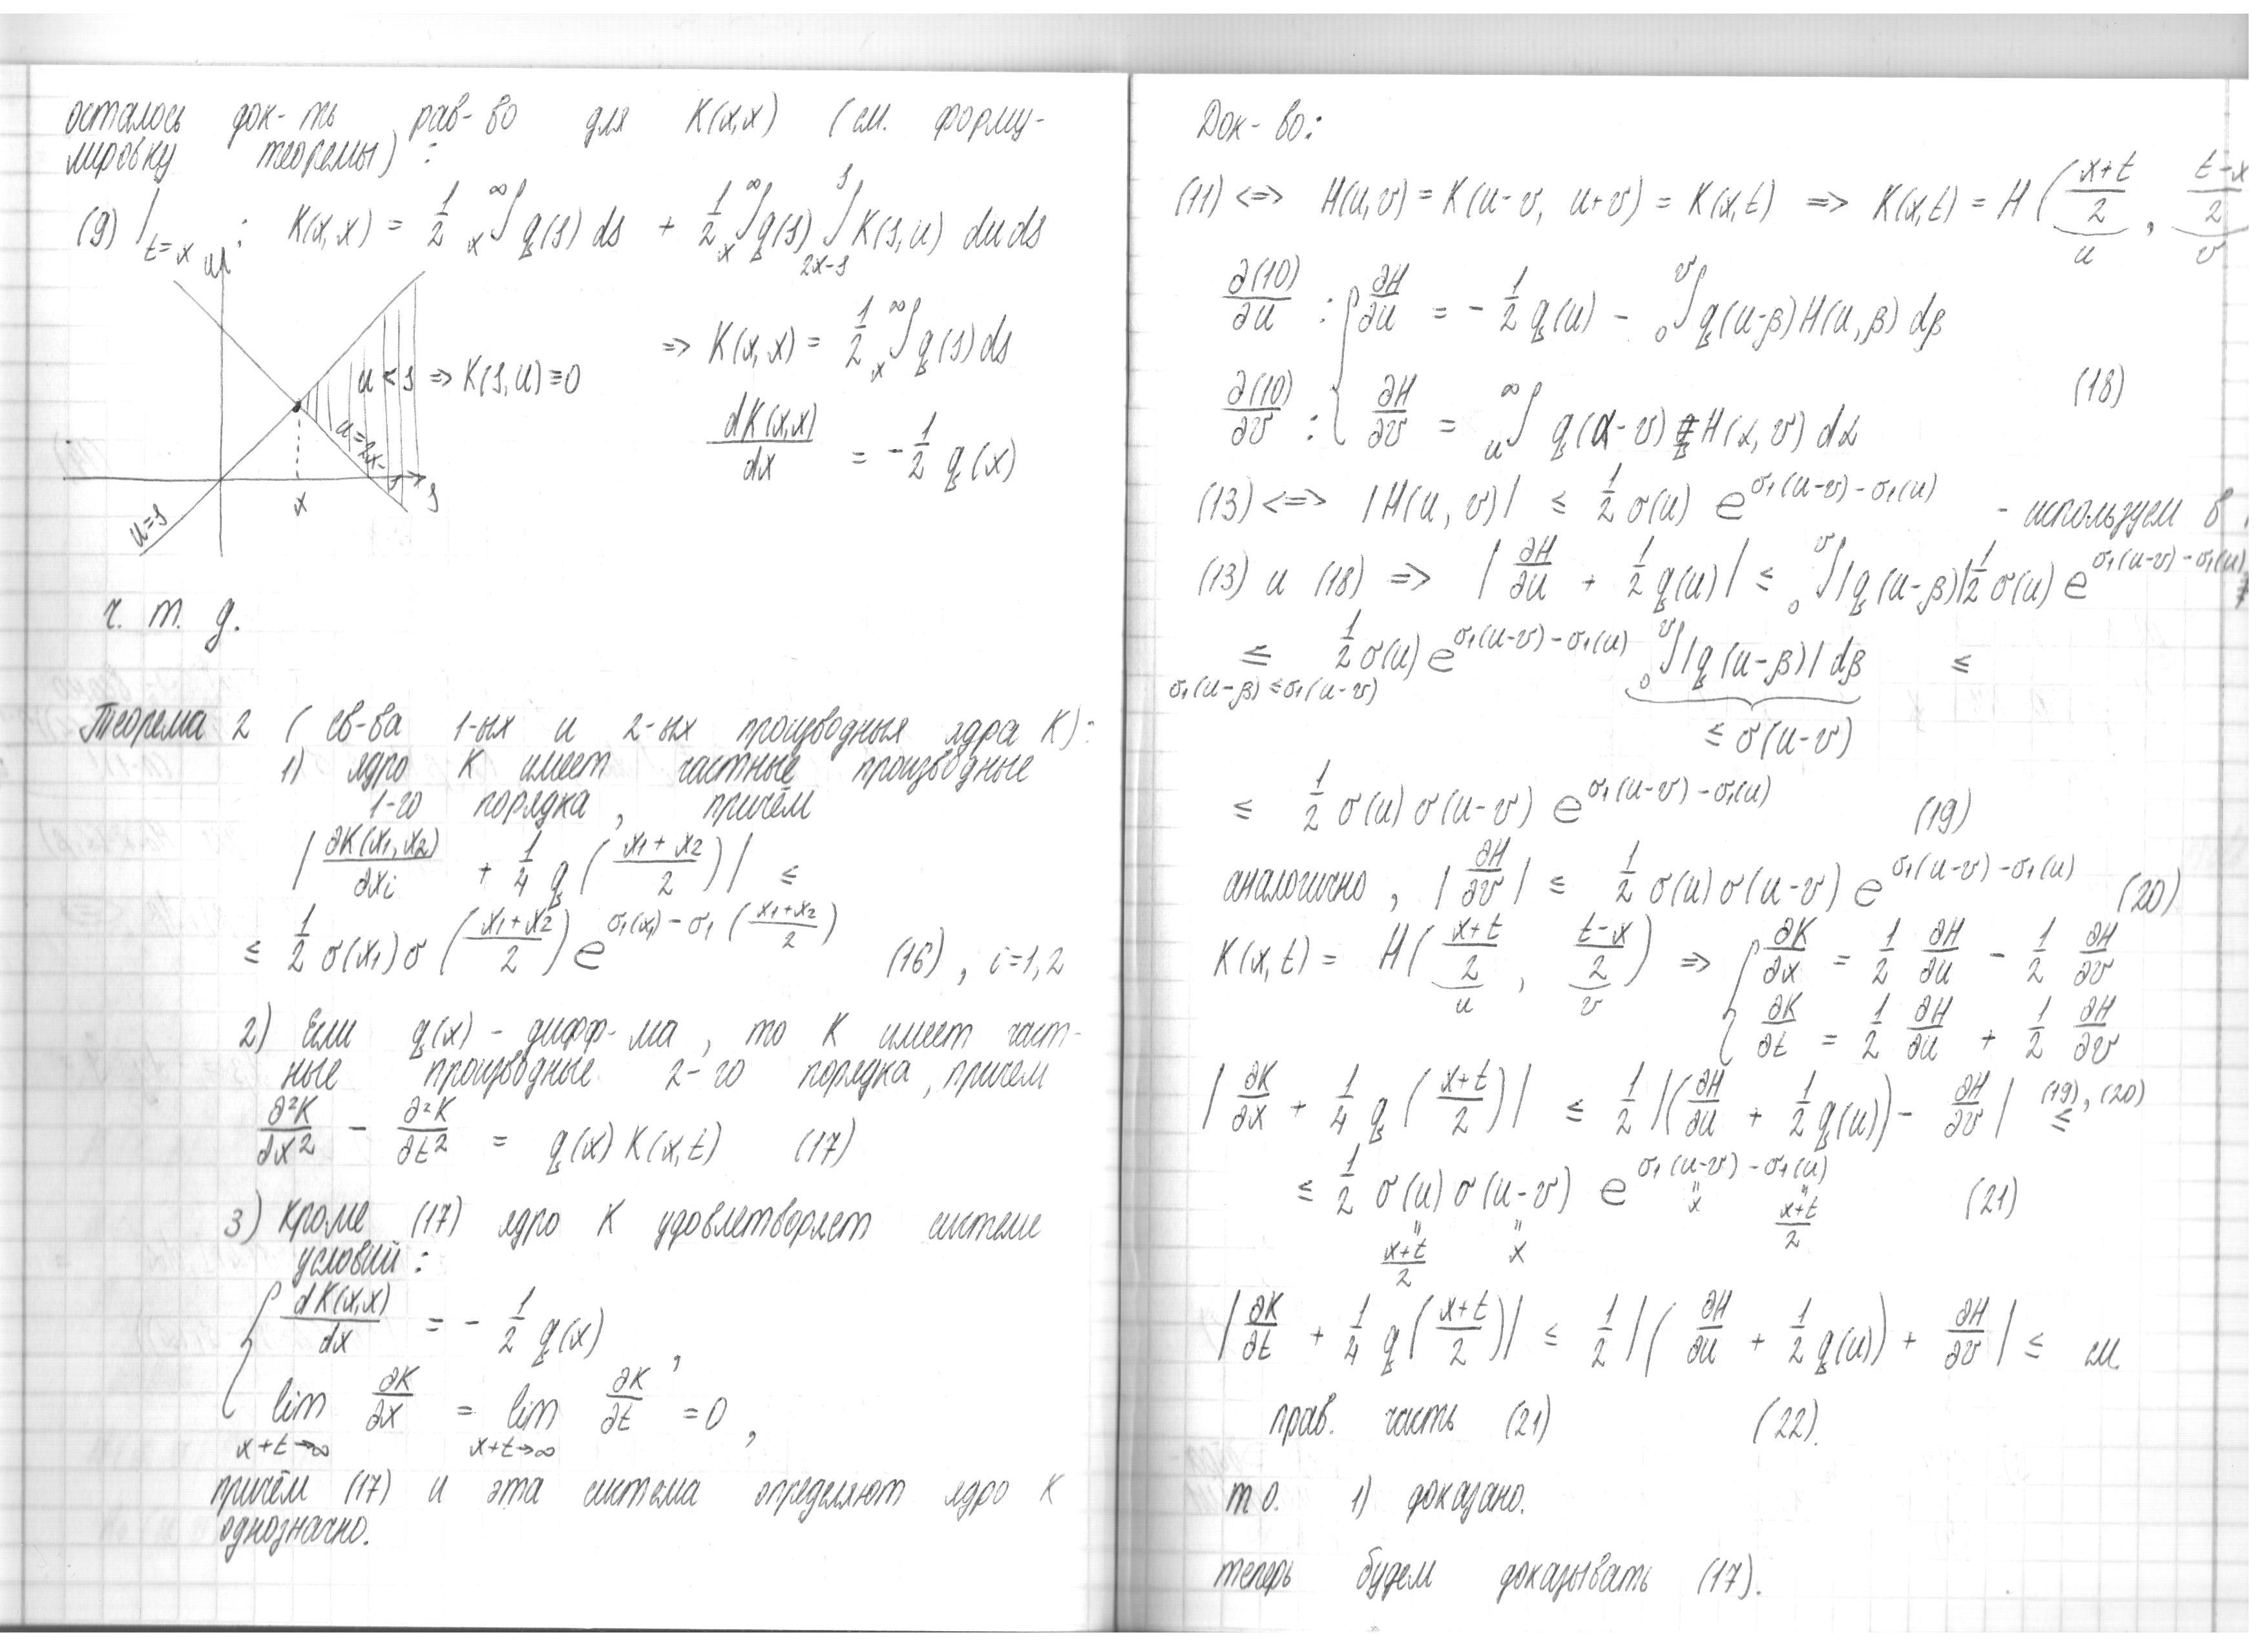 осталось док-ть рав-во для K(x,x) (см. форму-
лировку теоремы):
(9)|_{t=x} : K(x,x) = 1/2 ∫_x^∞ q(s) ds + 1/2 ∫_x^∞ q(s) ∫_{2x-s}^s K(s,u) du ds
u
⇒ K(x,x) = 1/2 ∫_x^∞ q(s) ds
u < s ⇒ K(s,u) ≡ 0
dK(x,x)/dx = -1/2 q(x)
u=2x-s
x
s
u=s
ч. т. д.
Теорема 2 (св-ва 1-ых и 2-ых производных ядра K):
1) ядро K имеет частные производные
1-го порядка, причём
|∂K(x₁,x₂)/∂xi + 1/4 q((x₁+x₂)/2)| ≤
≤ 1/2 σ(x₁) σ((x₁+x₂)/2) e^{σ₁(x₁) - σ₁((x₁+x₂)/2)} (16), i=1,2
2) Если q(x) - дифф-ма, то K имеет част-
ные производные 2-го порядка, причем
∂²K/∂x² - ∂²K/∂t² = q(x) K(x,t) (17)
3) Кроме (17) ядро K удовлетворяет системе
условий:
{ dK(x,x)/dx = - 1/2 q(x),
lim_{x+t→∞} ∂K/∂x = lim_{x+t→∞} ∂K/∂t = 0,
причём (17) и эта система определяют ядро K
однозначно.
Док-во:
(11) <=> H(u,v) = K(u-v, u+v) = K(x,t) => K(x,t) = H((x+t)/2, (t-x)/2)
u v
∂(10)/∂u : { ∂H/∂u = - 1/2 q(u) - ∫_0^v q(u-β) H(u,β) dβ
(18)
∂(10)/∂v : ∂H/∂v = ∫_u^∞ q(α-v) H(α,v) dα
(13) <=> |H(u,v)| ≤ 1/2 σ(u) e^{σ₁(u-v) - σ₁(u)} - используем в
(13) и (18) => |∂H/∂u + 1/2 q(u)| ≤ ∫_0^v |q(u-β)| 1/2 σ(u) e^{σ₁(u-v) - σ₁(u)}
≤ 1/2 σ(u) e^{σ₁(u-v) - σ₁(u)} ∫_0^v |q(u-β)| dβ ≤
σ₁(u-β) ≤ σ₁(u-v)
≤ σ(u-v)
≤ 1/2 σ(u) σ(u-v) e^{σ₁(u-v) - σ₁(u)} (19)
аналогично, |∂H/∂v| ≤ 1/2 σ(u) σ(u-v) e^{σ₁(u-v) - σ₁(u)} (20)
K(x,t) = H((x+t)/2, (t-x)/2) => { ∂K/∂x = 1/2 ∂H/∂u - 1/2 ∂H/∂v
u v
∂K/∂t = 1/2 ∂H/∂u + 1/2 ∂H/∂v
|∂K/∂x + 1/4 q((x+t)/2)| ≤ 1/2 |(∂H/∂u + 1/2 q(u)) - ∂H/∂v| ≤ (19), (20)
≤ 1/2 σ(u) σ(u-v) e^{σ₁(u-v) - σ₁(u)} (21)
" (x+t)/2 " x " x " (x+t)/2
|∂K/∂t + 1/4 q((x+t)/2)| ≤ 1/2 |(∂H/∂u + 1/2 q(u)) + ∂H/∂v| ≤ см.
прав. часть (21) (22).
т о. 1) доказано.
теперь будем доказывать (17).